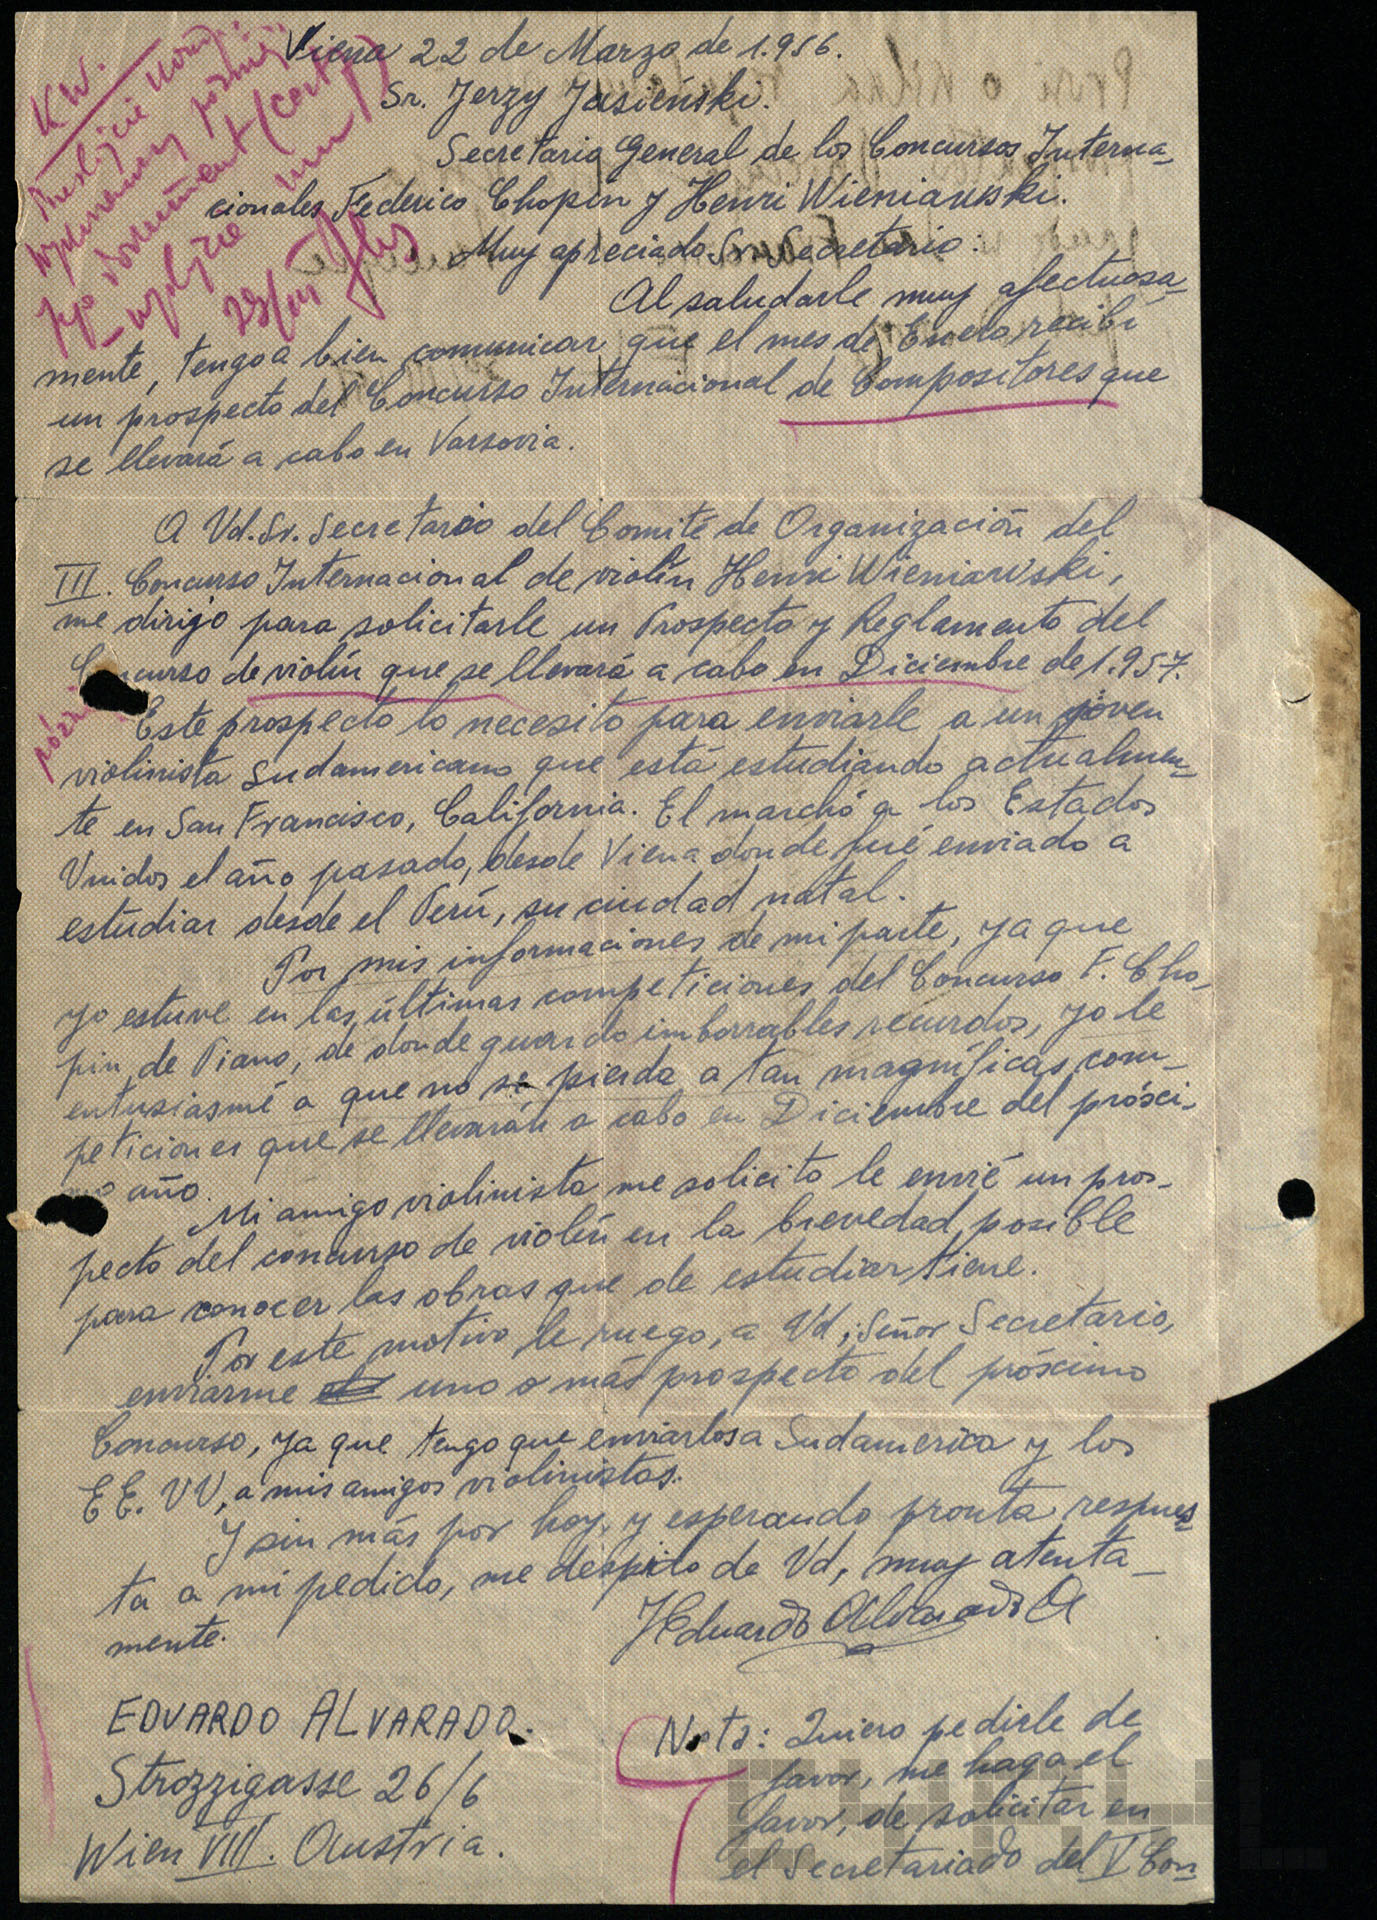 Viena 22 de Marzo de 1.956.
Sr. Jerzy Jasieński.
Secretario General de los Concursos Interna-
cionales Federico Chopin y Henri Wieniawski.
Muy apreciado Sr. Secretario:
Al saludarle muy afectuosa-
mente, tengo a bien comunicar que el mes de Enero, recibí
un prospecto del Concurso Internacional de Compositores que
se llevará a cabo en Varsovia.
A Vd. Sr. Secretario del Comité de Organización del
III. Concurso Internacional de violín Henri Wieniawski,
me dirijo para solicitarle un Prospecto y Reglamento del
Concurso de violín que se llevará a cabo en Diciembre de 1.957.
Este prospecto lo necesito para enviarle a un joven
violinista Sudamericano que está estudiando actualmen-
te en San Francisco, California. El marchó a los Estados
Unidos el año pasado, desde Viena donde fué enviado a
estudiar desde el Perú, su ciudad natal.
Por mis informaciones de mi parte, ya que
yo estuve en las últimas competiciones del Concurso F. Cho-
pin de Piano, de donde guardo imborrables recuerdos, yo le
entusiasmé a que no se pierda a tan magníficas com-
peticiones que se llevarán a cabo en Diciembre del prósci-
mo año.
Mi amigo violinista me solicito le envié un pros-
pecto del concurso de violín en la brevedad posible
para conocer las obras que de estudiar tiene.
Por este motivo le ruego, a Vd, Señor Secretario,
enviarme uno o más prospecto del próscimo
Concurso, ya que tengo que enviarlos a Sudamerica y los
EE. UU, a mis amigos violinistas.
Y sin más por hoy, y esperando pronta respues-
ta a mi pedido, me despido de Vd, muy atenta-
mente.
HEduardo Alvarado A
EDUARDO ALVARADO.
Strozzigasse 26/6
Wien VIII. Austria.
Nota: Quiero pedirle de
favor, me haga el
favor, de solicitar en
el Secretariado del V Con-
KW.
dokument (cert
23/III